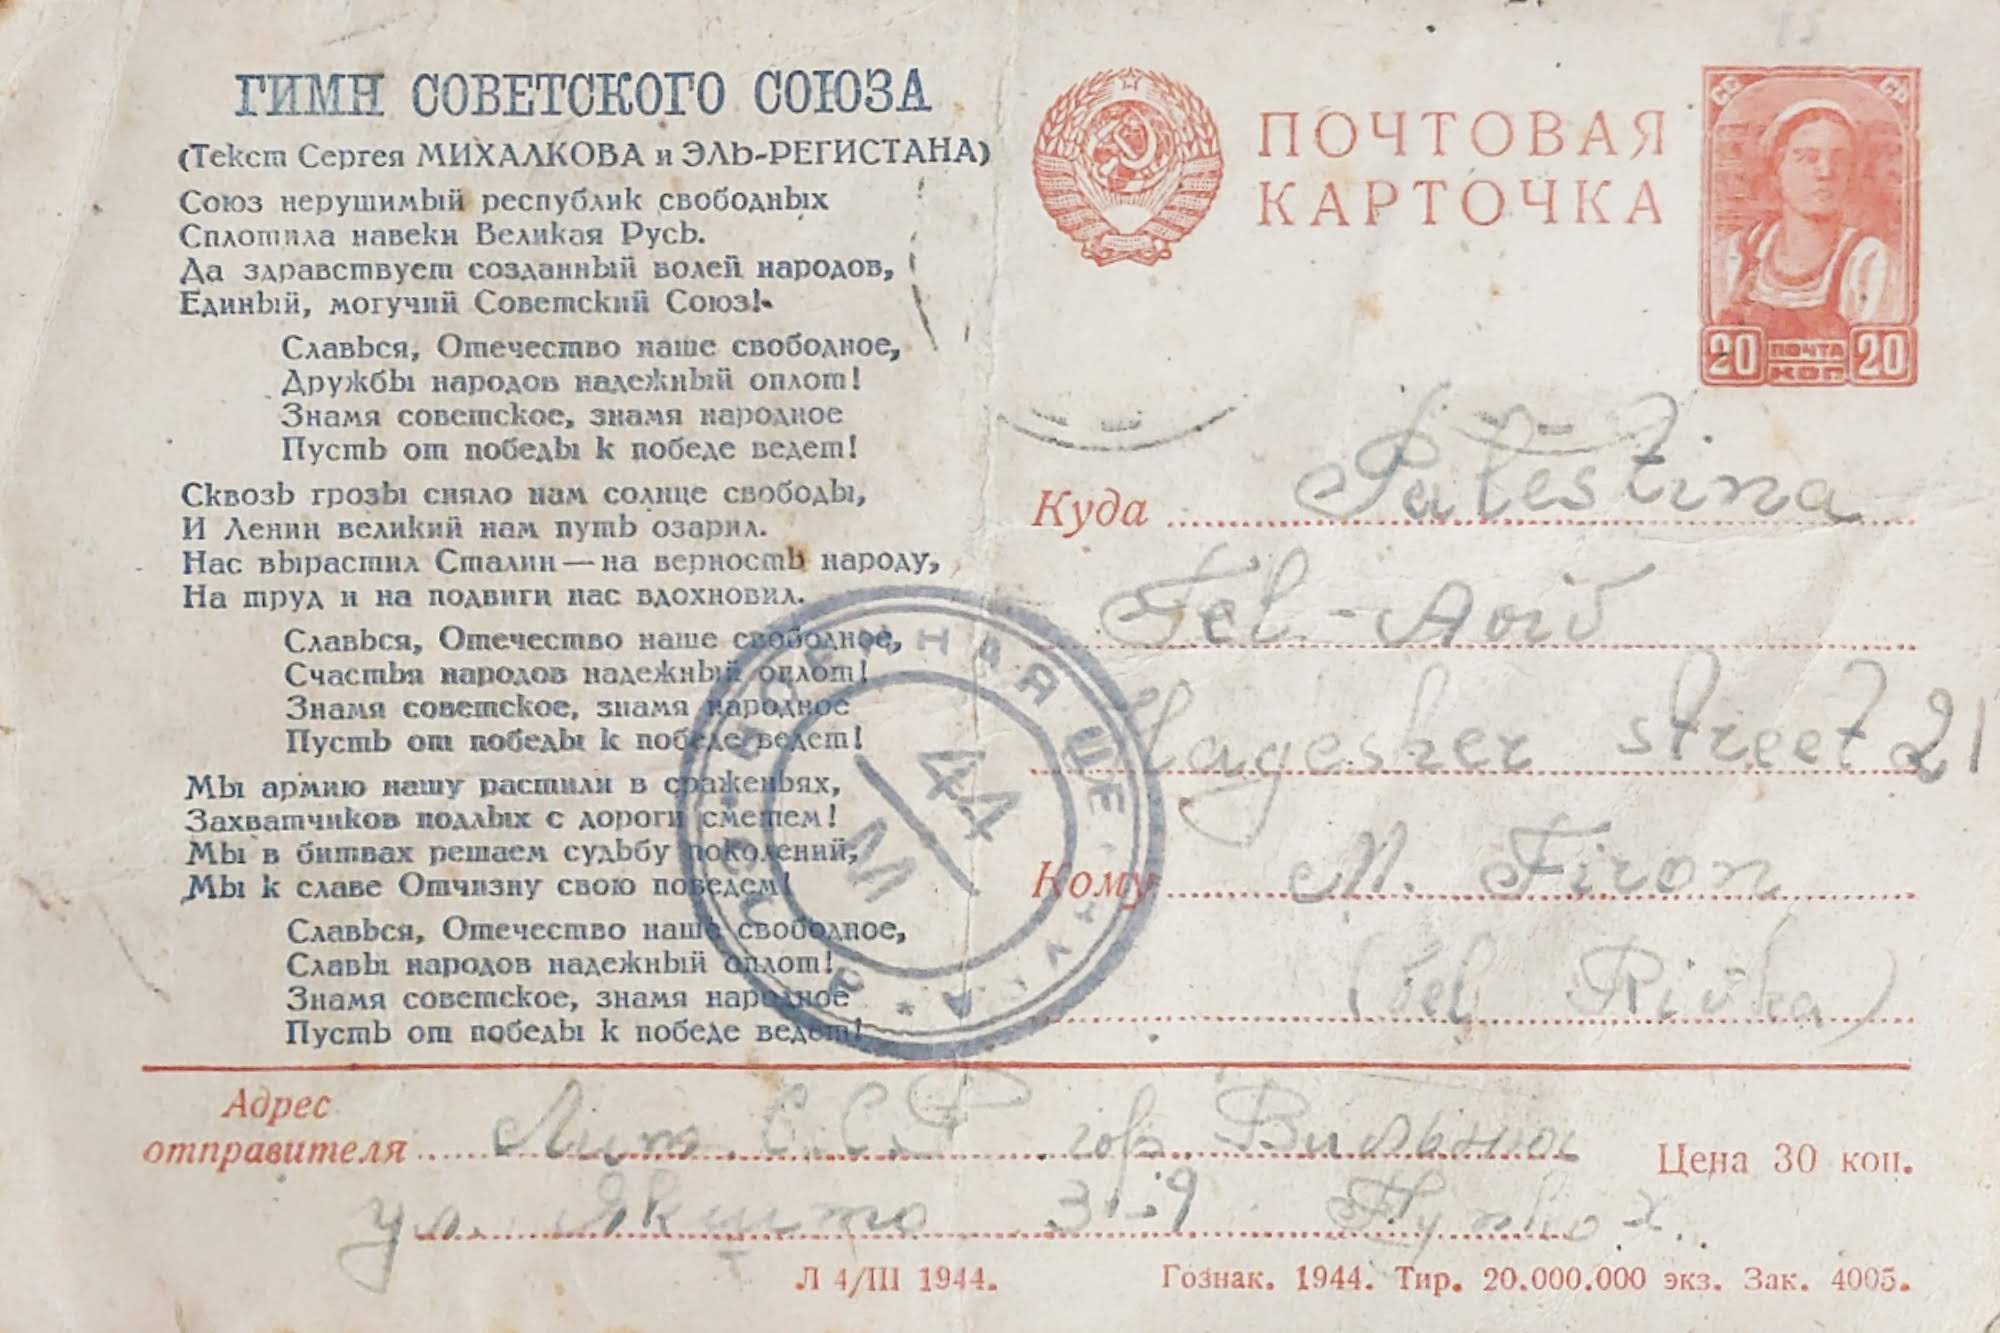 ГИМН СОВЕТСКОГО СОЮЗА
(Текст Сергея МИХАЛКОВА и ЭЛЬ-РЕГИСТАНА)
Союз нерушимый республик свободных
Сплотила навеки Великая Русь.
Да здравствует созданный волей народов,
Единый, могучий Советский Союз!
Славься, Отечество наше свободное,
Дружбы народов надежный оплот!
Знамя советское, знамя народное
Пусть от победы к победе ведет!
Сквозь грозы сияло нам солнце свободы,
И Ленин великий нам путь озарил.
Нас вырастил Сталин — на верность народу,
На труд и на подвиги нас вдохновил.
Славься, Отечество наше свободное,
Счастья народов надежный оплот!
Знамя советское, знамя народное
Пусть от победы к победе ведет!
Мы армию нашу растили в сраженьях,
Захватчиков подлых с дороги сметем!
Мы в битвах решаем судьбу поколений,
Мы к славе Отчизну свою поведем!
Славься, Отечество наше свободное,
Славы народов надежный оплот!
Знамя советское, знамя народное
Пусть от победы к победе ведет!
ПОЧТОВАЯ
КАРТОЧКА
20 ПОЧТА 20
КОП
Куда Palestina
Tel-Aviv
Hagesher street 21
Кому M. Firon
Rivka)
44
М
Адрес
отправителя Лит. С.С.Р гор. Вильнюс
Цена 30 коп.
ул. 31-9
Л 4/III 1944.
Гознак. 1944. Тир. 20.000.000 экз. Зак. 4005.